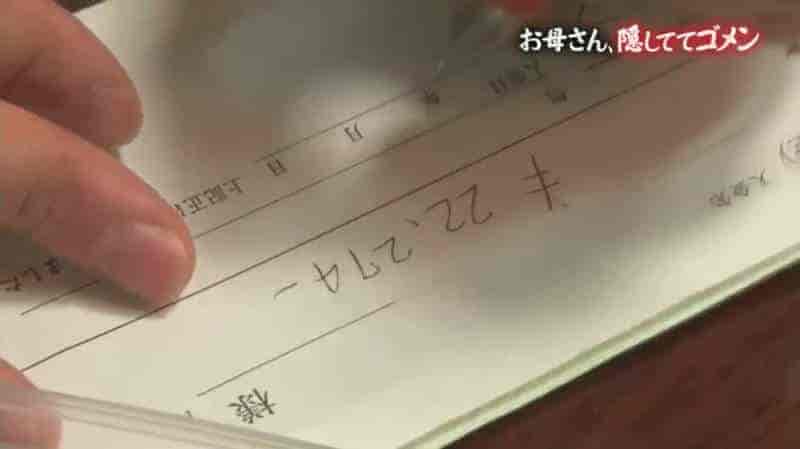 お母さん、隠しててゴメン
様
¥22,274-
上記正
年 月 日
ました